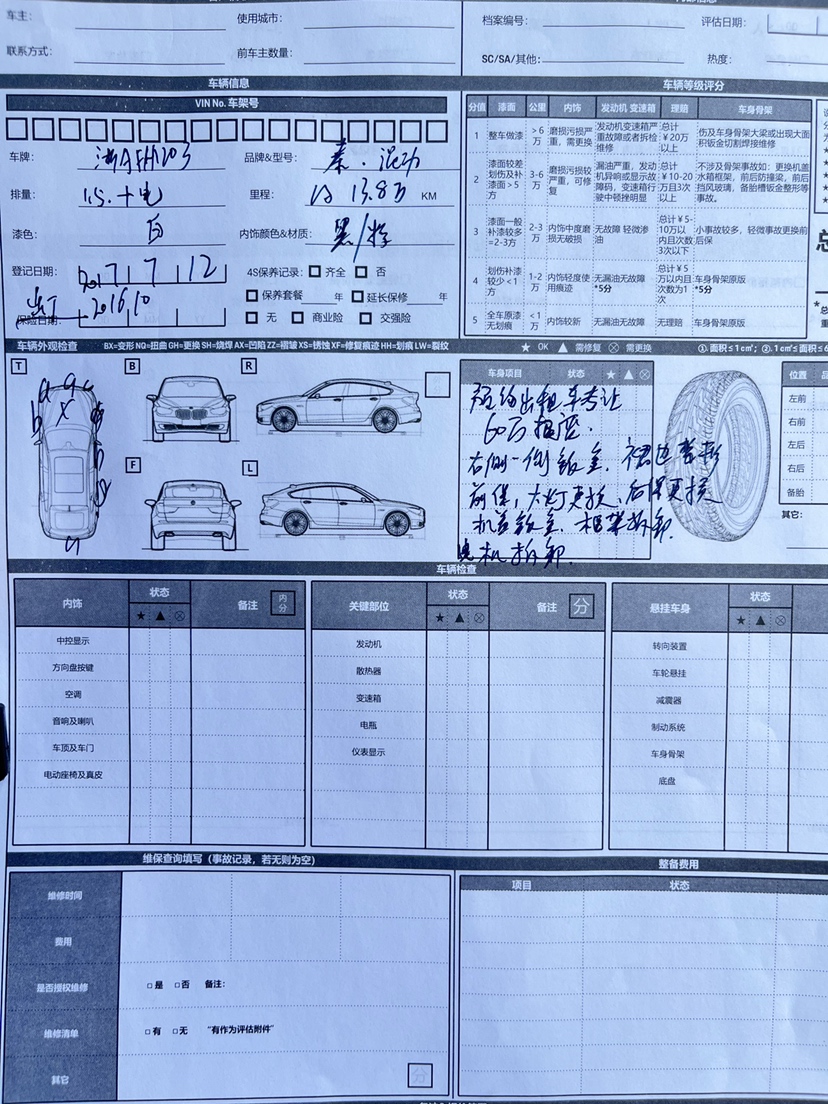 车主：
使用城市：
档案编号：
评估日期：
联系方式：
前车主数量：
SC/SA/其他：
热度：
车辆信息
车辆等级评分
VIN No. 车架号
车牌：
品牌&型号： 秦．混动
排量： 1.5.+电
里程： 13.8万 KM
漆色： 白
内饰颜色&材质： 黑/
登记日期： 2017 7 12
4S保养记录： 齐全 否
出厂 2016.10
保养套餐 年 延长保修 年
保险日期：
无 商业险 交强险
分值 漆面 公里 内饰 发动机 变速箱 理赔 车身骨架
1 整车做漆 >6万 磨损污损严重，需更换 发动机变速箱严重故障或者拆检维修 总计￥20万以上 伤及车身骨架大梁或出现大面积钣金切割焊接维修
2 漆面较差划伤及补漆面>5方 3-6万 磨损污损较严重，可修复 漏油严重，发动机异响或显示故障码，变速箱行驶中顿挫明显 总计￥10-20万且3次以上 不涉及骨架事故如：更换机盖水箱框架，前后防撞梁，前后挡风玻璃，备胎槽钣金整形等事故。
3 漆面一般补漆较多=2-3方 2-3万 内饰中度磨损无破损 无故障 轻微渗油 总计￥5-10万以内且次数3次以下 小事故较多，轻微事故更换前后保
4 划伤补漆较少<1方 1-2万 内饰轻度使用痕迹 无漏油无故障 *5分 总计￥5万以内且次数为1次 车身骨架原版 *5分
5 全车原漆无划痕 <1万 内饰较新 无漏油无故障 无理赔 车身骨架原版
车辆外观检查 BX=变形 NQ=扭曲 GH=更换 SH=烧焊 AX=凹陷 ZZ=褶皱 XS=锈蚀 XF=修复痕迹 HH=划痕 LW=裂纹
★ OK ▲ 需修复 ⊗ 需更换 ①.面积≤1cm²；
T B R
F L
车身项目 状态 ★ ▲ ⊗
预约出租车
60万报废．
右侧一侧钣金．裙边整形
前保，大灯更换，后保更换
机盖钣金．框架拆卸．
电机拆卸．
位置
左前
右前
左后
右后
备胎
其它：
车辆检查
内饰 状态 备注 内分
★ ▲ ⊗
中控显示
方向盘按键
空调
音响及喇叭
车顶及车门
电动座椅及真皮
关键部位 状态 备注 分
★ ▲ ⊗
发动机
散热器
变速箱
电瓶
仪表显示
悬挂车身 状态
★ ▲ ⊗
转向装置
车轮悬挂
减震器
制动系统
车身骨架
底盘
维保查询填写（事故记录，若无则为空）
维修时间
费用
是否授权维修 是 否 备注：
维修清单 有 无 “有作为评估附件”
其它 分
整备费用
项目 状态